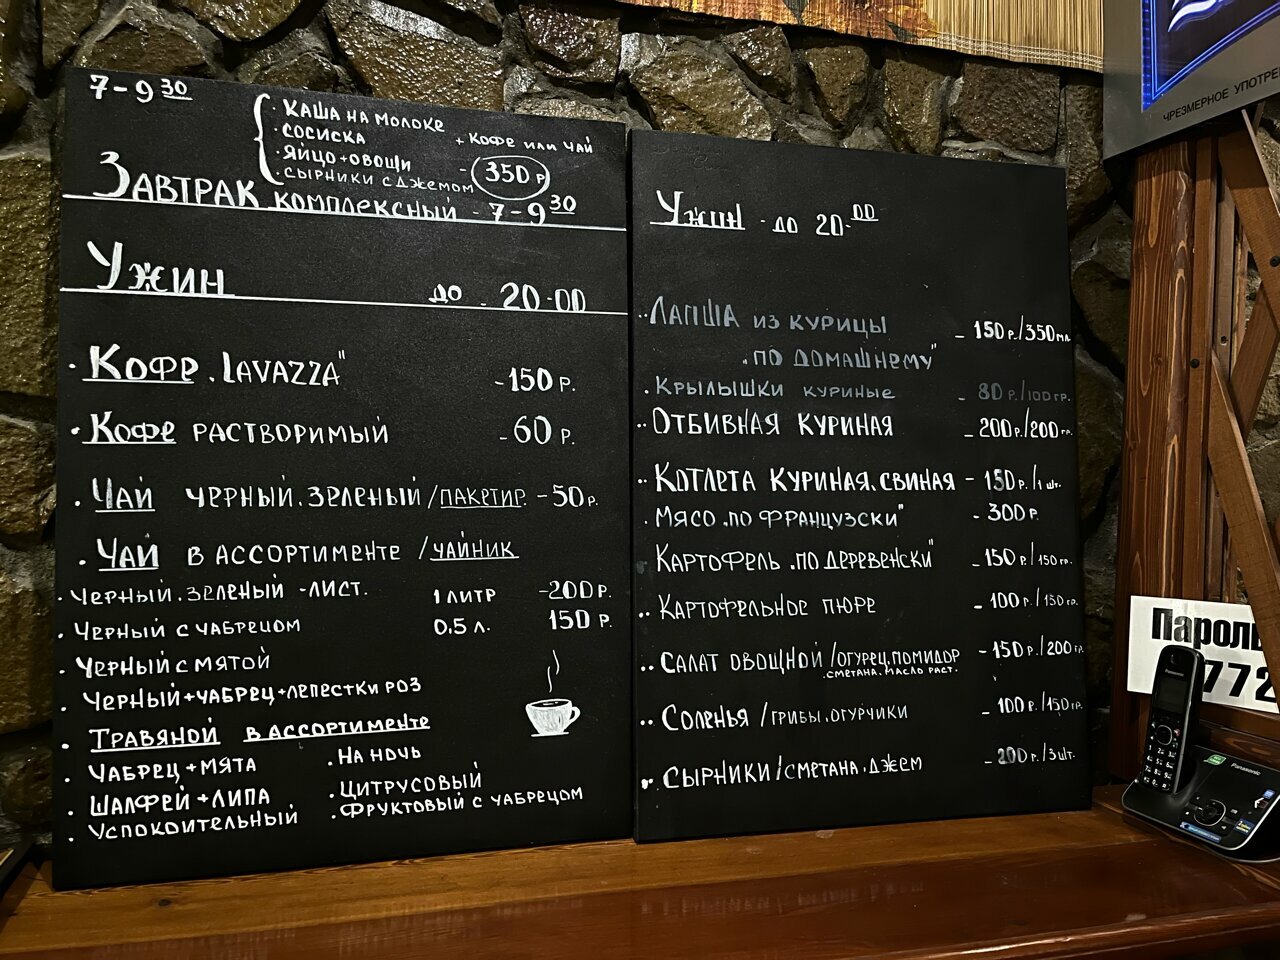 7-9 30
КАША НА МОЛОКЕ
СОСИСКА
+ КОФЕ ИЛИ ЧАЙ
ЯЙЦО+ОВОЩИ
СЫРНИКИ С ДЖЕМОМ
- 350 Р
ЗАВТРАК КОМПЛЕКСНЫЙ - 7-9 30
УЖИН ДО - 20-00
· КОФЕ "LAVAZZA" -150 Р.
· КОФЕ РАСТВОРИМЫЙ -60 Р.
· ЧАЙ ЧЕРНЫЙ.ЗЕЛЕНЫЙ/ПАКЕТИР. -50 Р.
· ЧАЙ В АССОРТИМЕНТЕ /ЧАЙНИК
· ЧЕРНЫЙ.ЗЕЛЕНЫЙ -ЛИСТ. 1 ЛИТР -200 Р.
· ЧЕРНЫЙ С ЧАБРЕЦОМ 0.5 Л. 150 Р.
· ЧЕРНЫЙ С МЯТОЙ
· ЧЕРНЫЙ+ЧАБРЕЦ+ЛЕПЕСТКИ РОЗ
· ТРАВЯНОЙ В АССОРТИМЕНТЕ
· ЧАБРЕЦ+МЯТА
· НА НОЧЬ
· ШАЛФЕЙ+ЛИПА
· ЦИТРУСОВЫЙ
· УСПОКОИТЕЛЬНЫЙ
· ФРУКТОВЫЙ С ЧАБРЕЦОМ
УЖИН - ДО 20-00
·· ЛАПША ИЗ КУРИЦЫ - 150 Р./350 МЛ
"ПО ДОМАШНЕМУ"
· КРЫЛЫШКИ КУРИНЫЕ - 80 Р./100 ГР.
·· ОТБИВНАЯ КУРИНАЯ - 200 Р./200 ГР.
·· КОТЛЕТА КУРИНАЯ.СВИНАЯ - 150 Р./1 ШТ.
· МЯСО "ПО ФРАНЦУЗСКИ" - 300 Р.
· КАРТОФЕЛЬ "ПО ДЕРЕВЕНСКИ" - 150 Р./150 ГР.
·· КАРТОФЕЛЬНОЕ ПЮРЕ - 100 Г./150 ГР.
·· САЛАТ ОВОЩНОЙ /ОГУРЕЦ.ПОМИДОР - 150 Р./200 ГР.
.СМЕТАНА.МАСЛО РАСТ.
·· СОЛЕНЬЯ /ГРИБЫ.ОГУРЧИКИ - 100 Р./150 ГР.
· СЫРНИКИ/СМЕТАНА.ДЖЕМ - 200 Р./3 ШТ.
ЧРЕЗМЕРНОЕ
Пароль
772
Panasonic
Panasonic